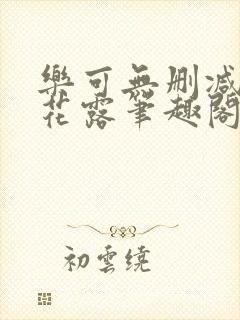 樂可無刪減
花露筆趣閣
初雲繞